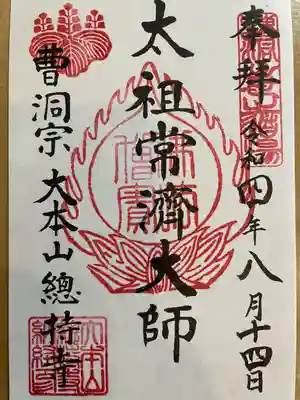 奉拝 令和四年八月十四日
太祖常濟大師
曹洞宗 大本山總持寺